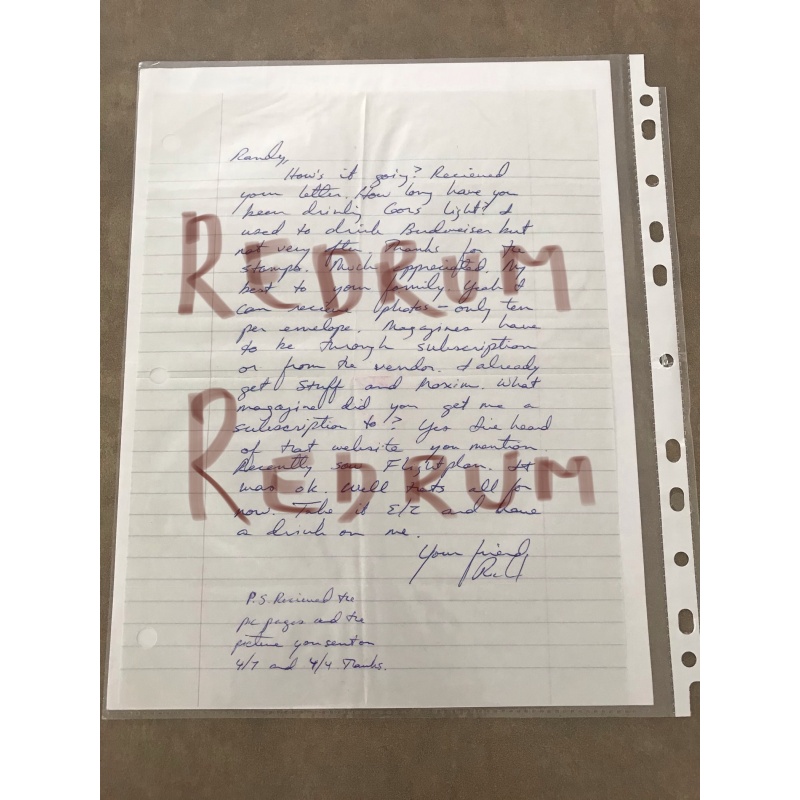 Randy,
How's it going? Recieved
your letter. How long have you
been drinking Coors Light? I
used to drink Budweiser but
not very often. Thanks for the
stamps. Much appreciated. My
best to your family. Yeah I
REDRUM
can receive photos - only ten
per envelope. Magazines have
to be through subscription
or from the vendor. I already
get Stuff and Maxim. What
magazine did you get me a
subscription to? Yes I've heard
of that website you mention.
Recently saw Flightplan. It
REDRUM
was ok. Well thats all for
now. Take it E/Z and have
a drink on me.
Your friend,
P.S. Recieved the
pc pages and the
picture you sent on
4/7 and 4/4 Thanks.